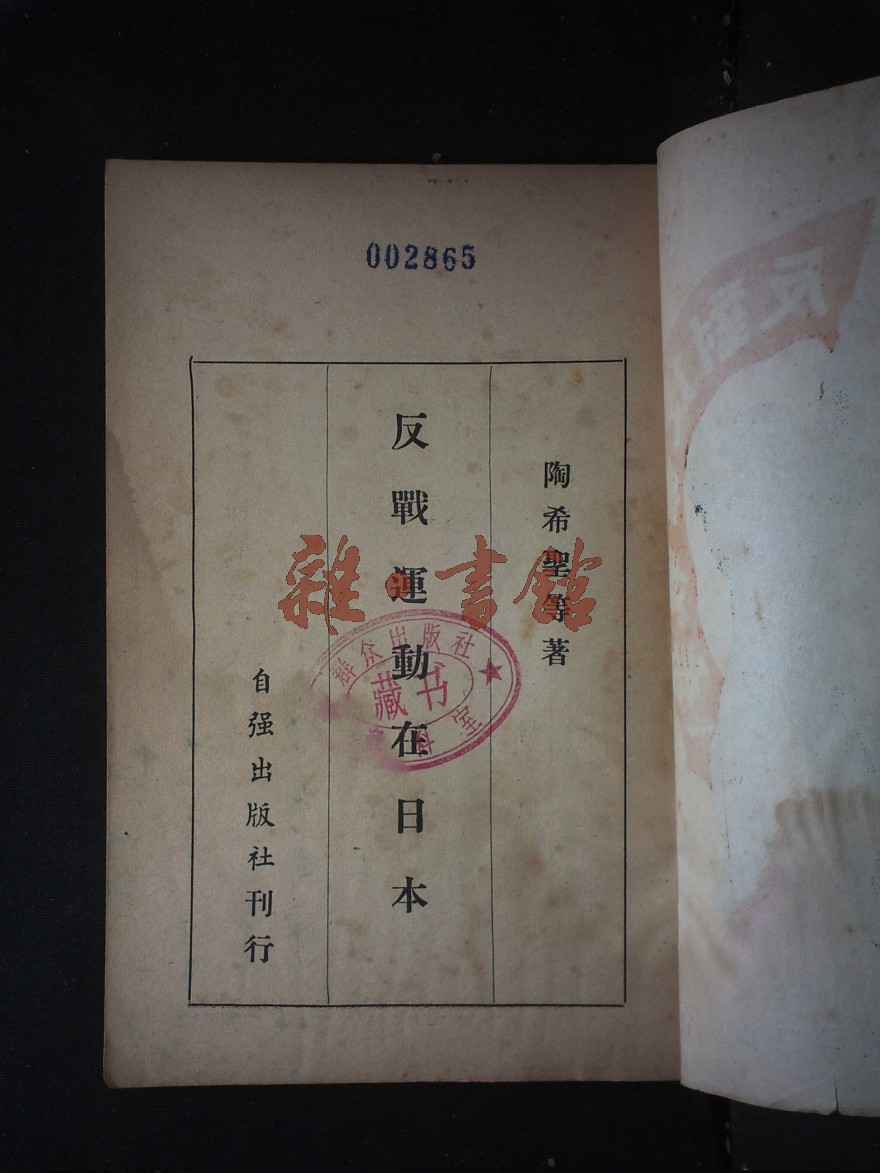 002865
陶希聖等著
反戰運動在日本
自强出版社刊行
雜·書館
群众出版社
藏书
反對